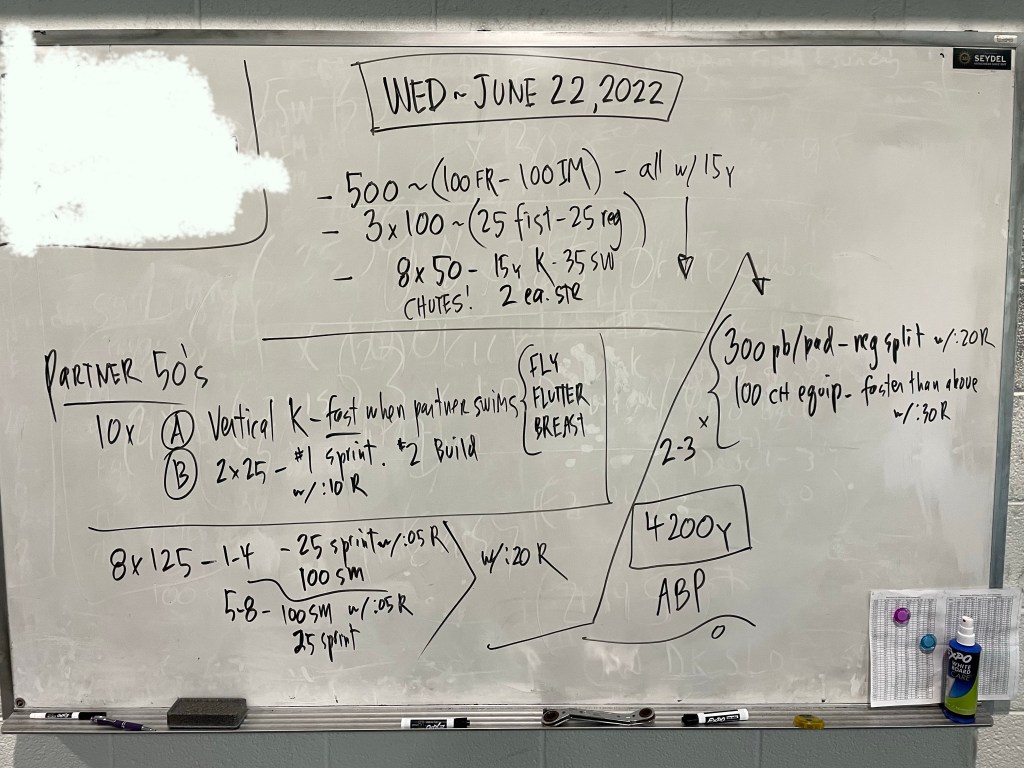 WED ~ JUNE 22, 2022
- 500 ~ (100 FR - 100 IM) - all w/ 15y
- 3 x 100 ~ (25 fist - 25 reg)
- 8 x 50 - 15y K - 35 sw
CHUTES! 2 ea. STR
PARTNER 50's
10x (A) Vertical K - fast when partner swims { FLY
FLUTTER
BREAST
(B) 2 x 25 - #1 sprint. #2 Build
w/ :10 R
8 x 125 - 1-4 - 25 sprint w/ :05 R
100 sm
5-8 - 100 sm w/ :05 R
25 sprint
w/ :20 R
2-3 x
300 pb/pad - reg split w/ :20 R
100 CH equip - faster than above
w/ :30 R
4200y
ABP
SEYDEL
EXPO
WHITE
BOARD
CARE
EXPO
EXPO
EXPO